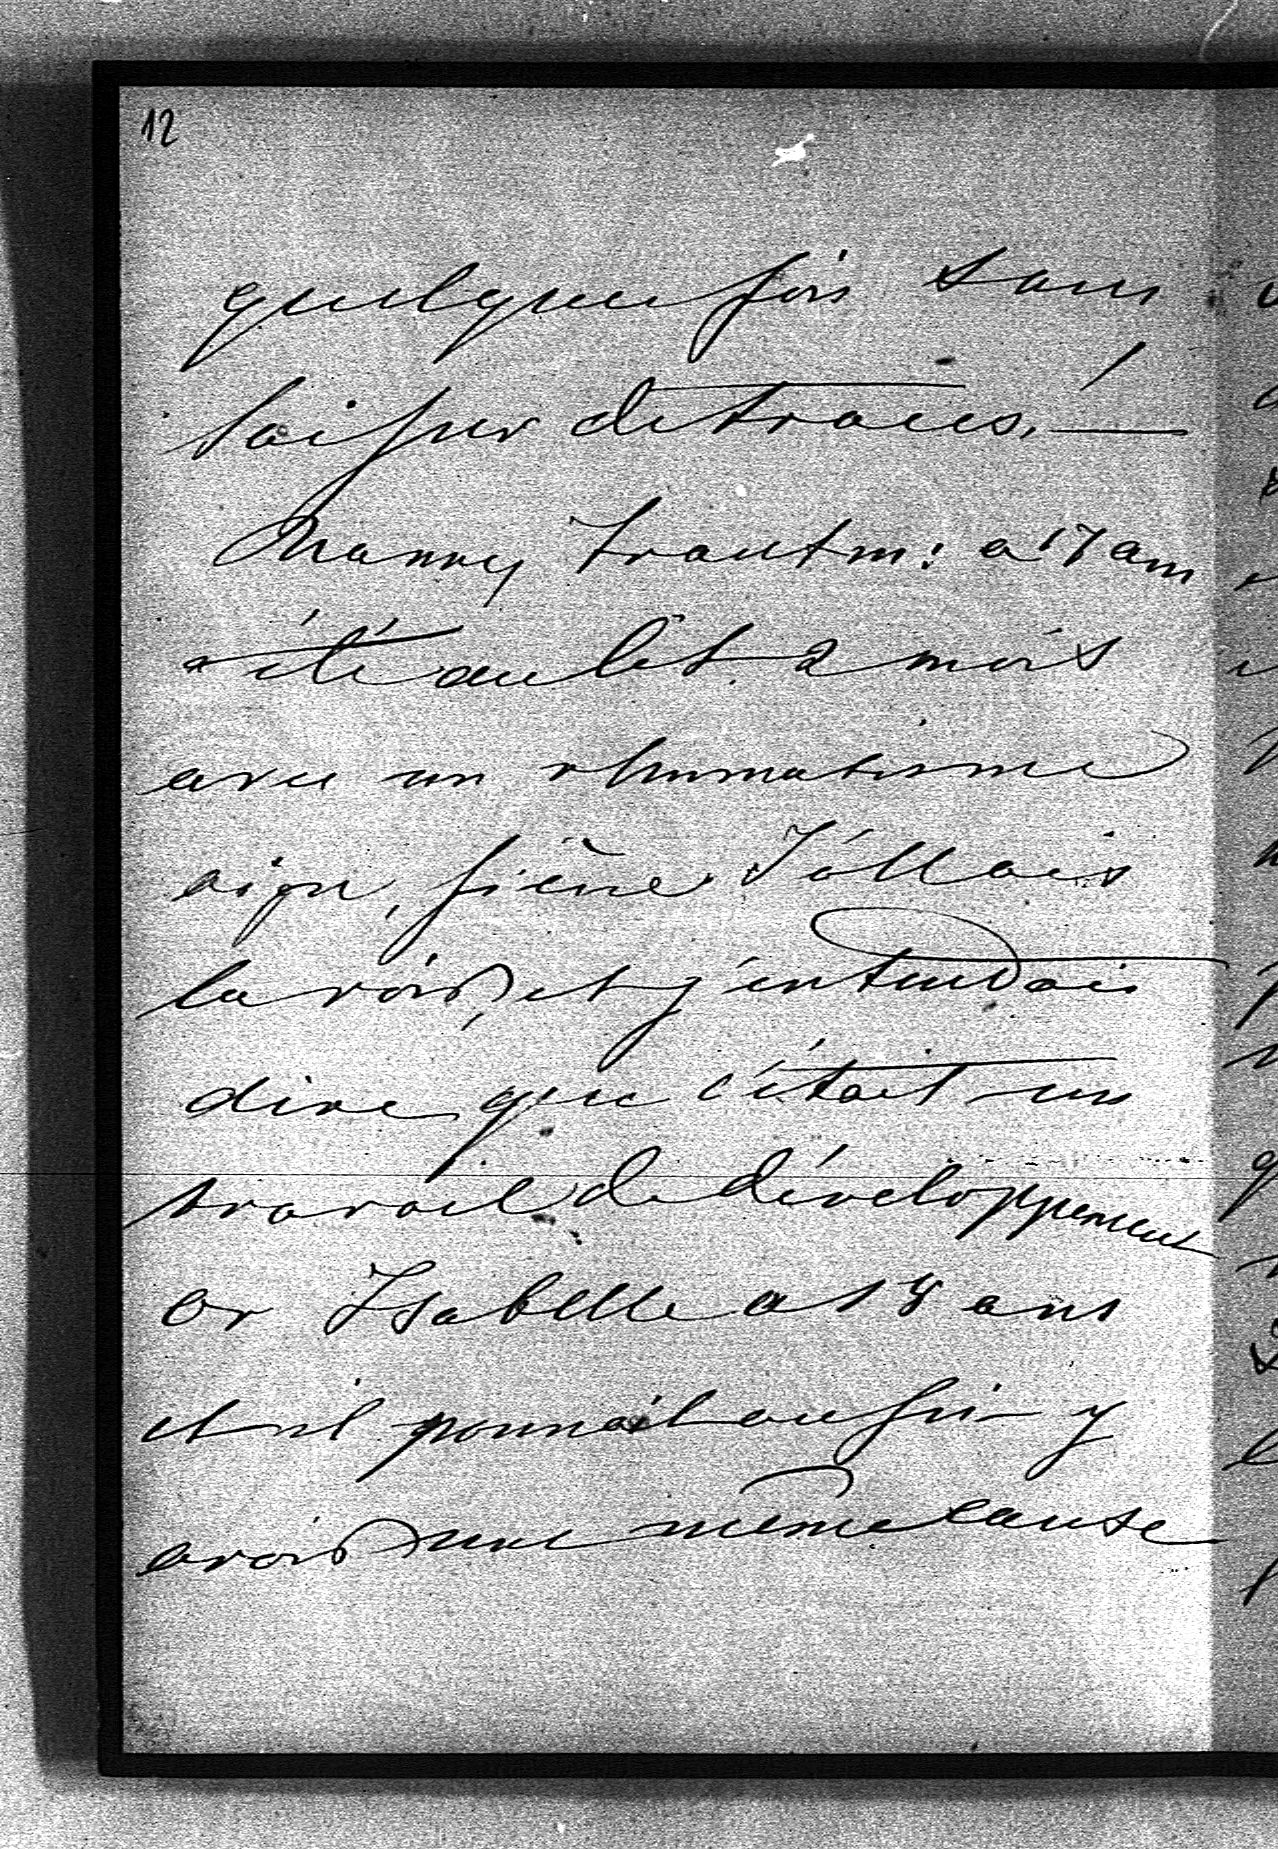 12
quelque fois sans
laisser de traces. —
Nanny Trautm: a 17 ans
a été au lit 2 mois
avec un rhumatisme
aigu, fièvre. J'allais
la voir, et j'entendais
dire que c'était un
travail de développement
or Isabelle a 18 ans
et il pourrait aussi y
avoir une même cause